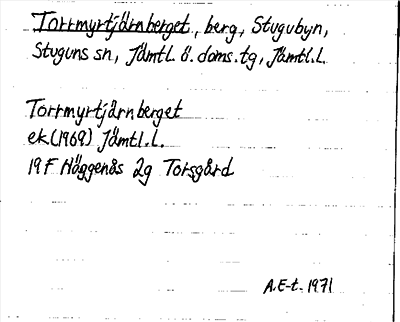 Torrmyrtjärnberget, berg, Stugubyn,
Stuguns sn, Jämtl. ö. doms.tg, Jämtl.l.
Torrmyrtjärnberget
ek.(1969) Jämtl.l.
19F Häggenås 2g Torsgård
A.E-t. 1971